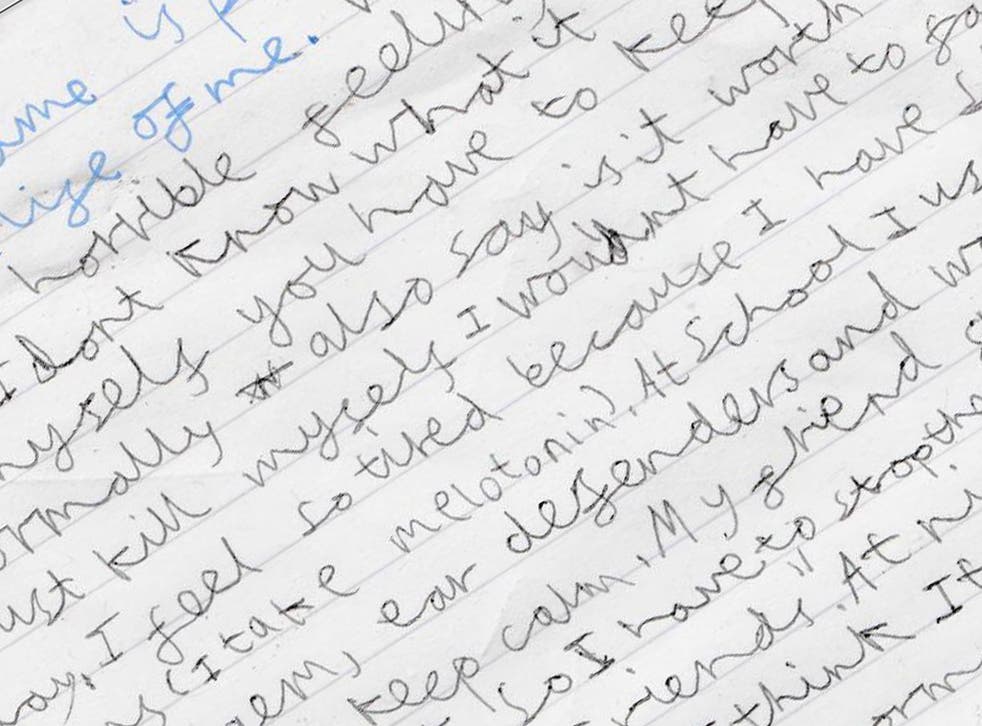 ame is p
life of me.
horrible feeli
I dont know what it
myself you have to kee
ormally also say is it worth
ust kill myself I wouldnt have to go
ay. I feel so tired because I have
(I take melotonin). At School I us
em, ear defenders and w
keep calm. My friend
So I have to stop the
riends. At ni
think It
orm